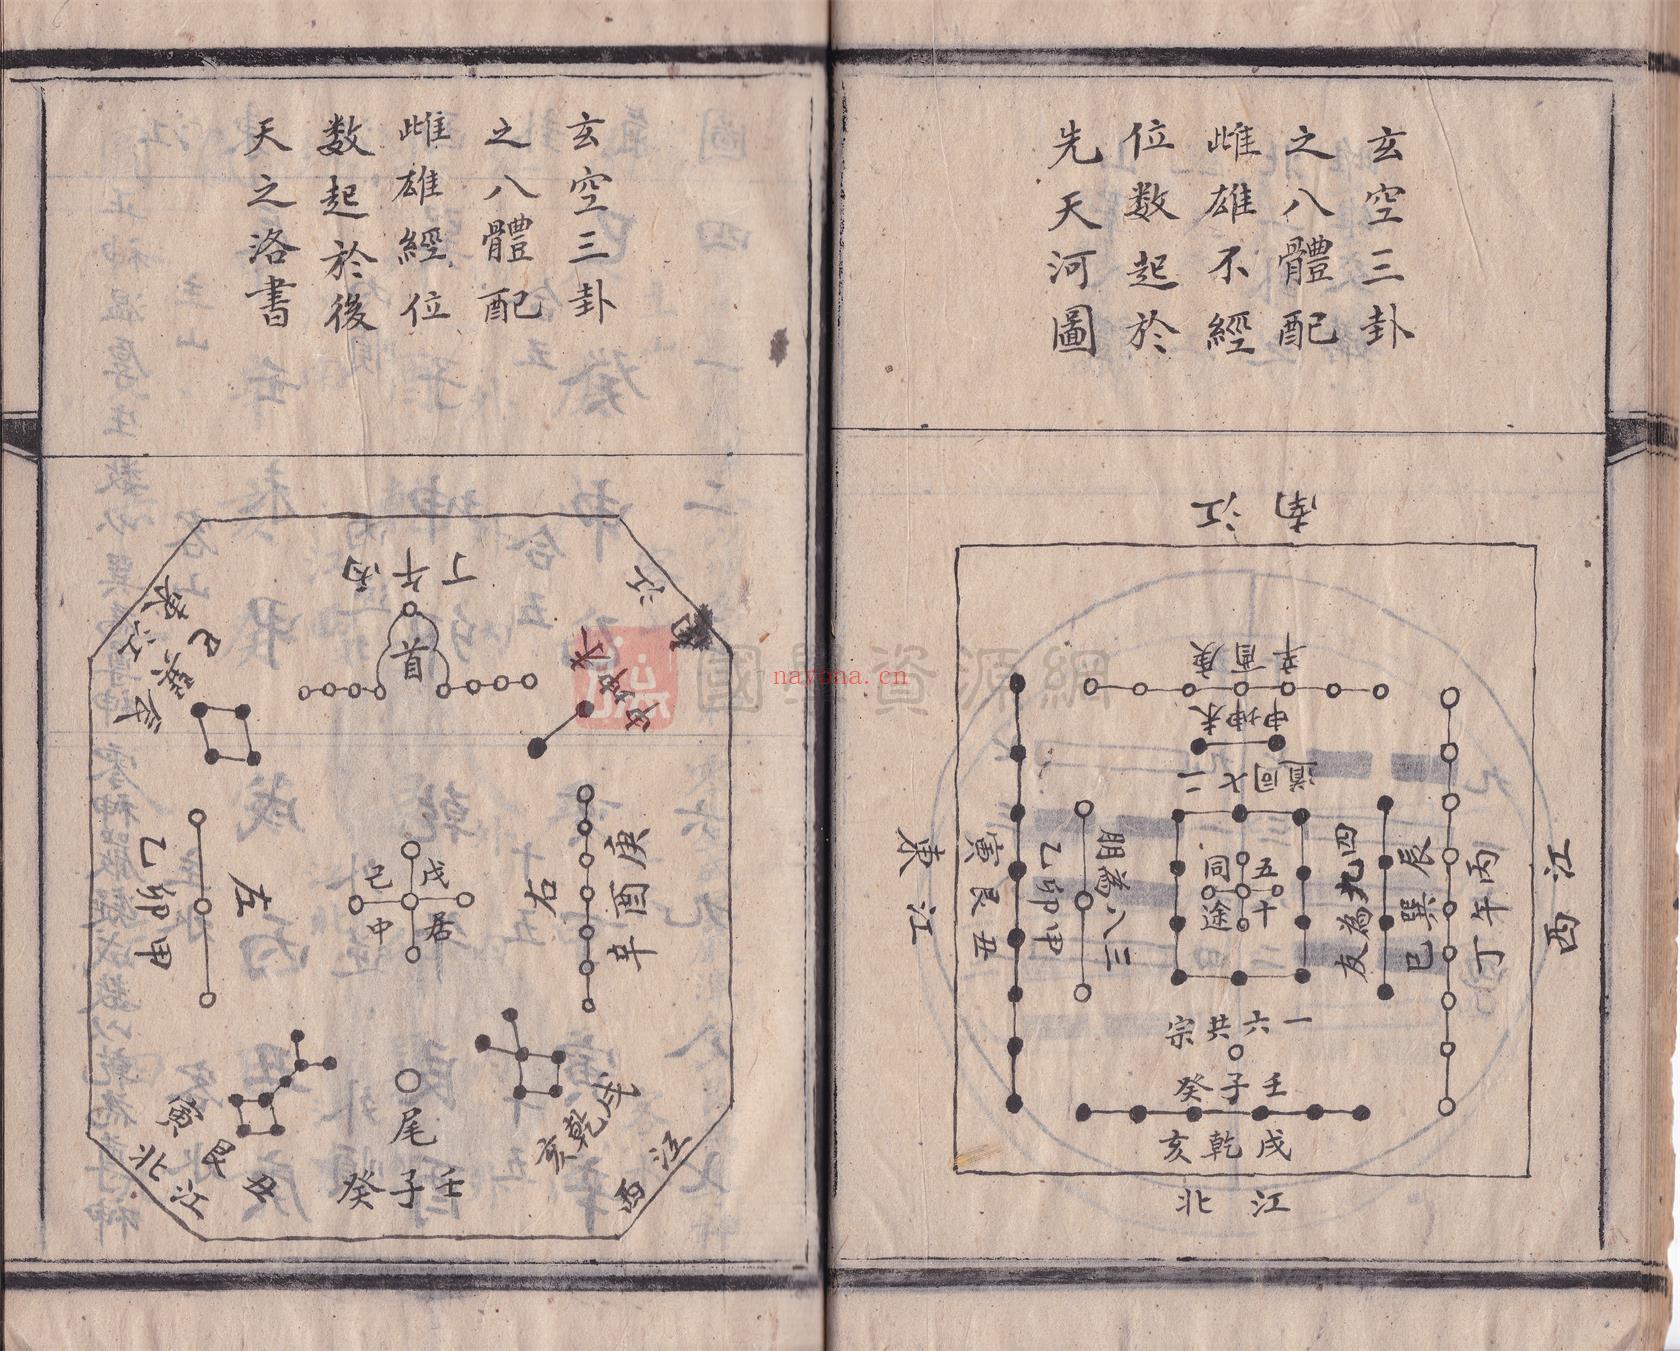 玄空三卦
之八體配
雌雄不經
位数起於
先天河圖
南江
辛酉庚
申坤未
二七同道
東江
寅艮丑
乙卯甲
三八為朋
五十
同途
四九為友
辰巽巳
丙午丁
西江
一六共宗
壬子癸
戌乾亥
江北
玄空三卦
之八體配
雌雄經位
数起於後
天之洛書
丙午丁
首
東江
巳巽辰
江
未坤申
乙卯甲
左
戊己
居中
右
庚酉辛
寅艮丑
北江
尾
壬子癸
戌乾亥
西江
國學資源網
nayona.cn